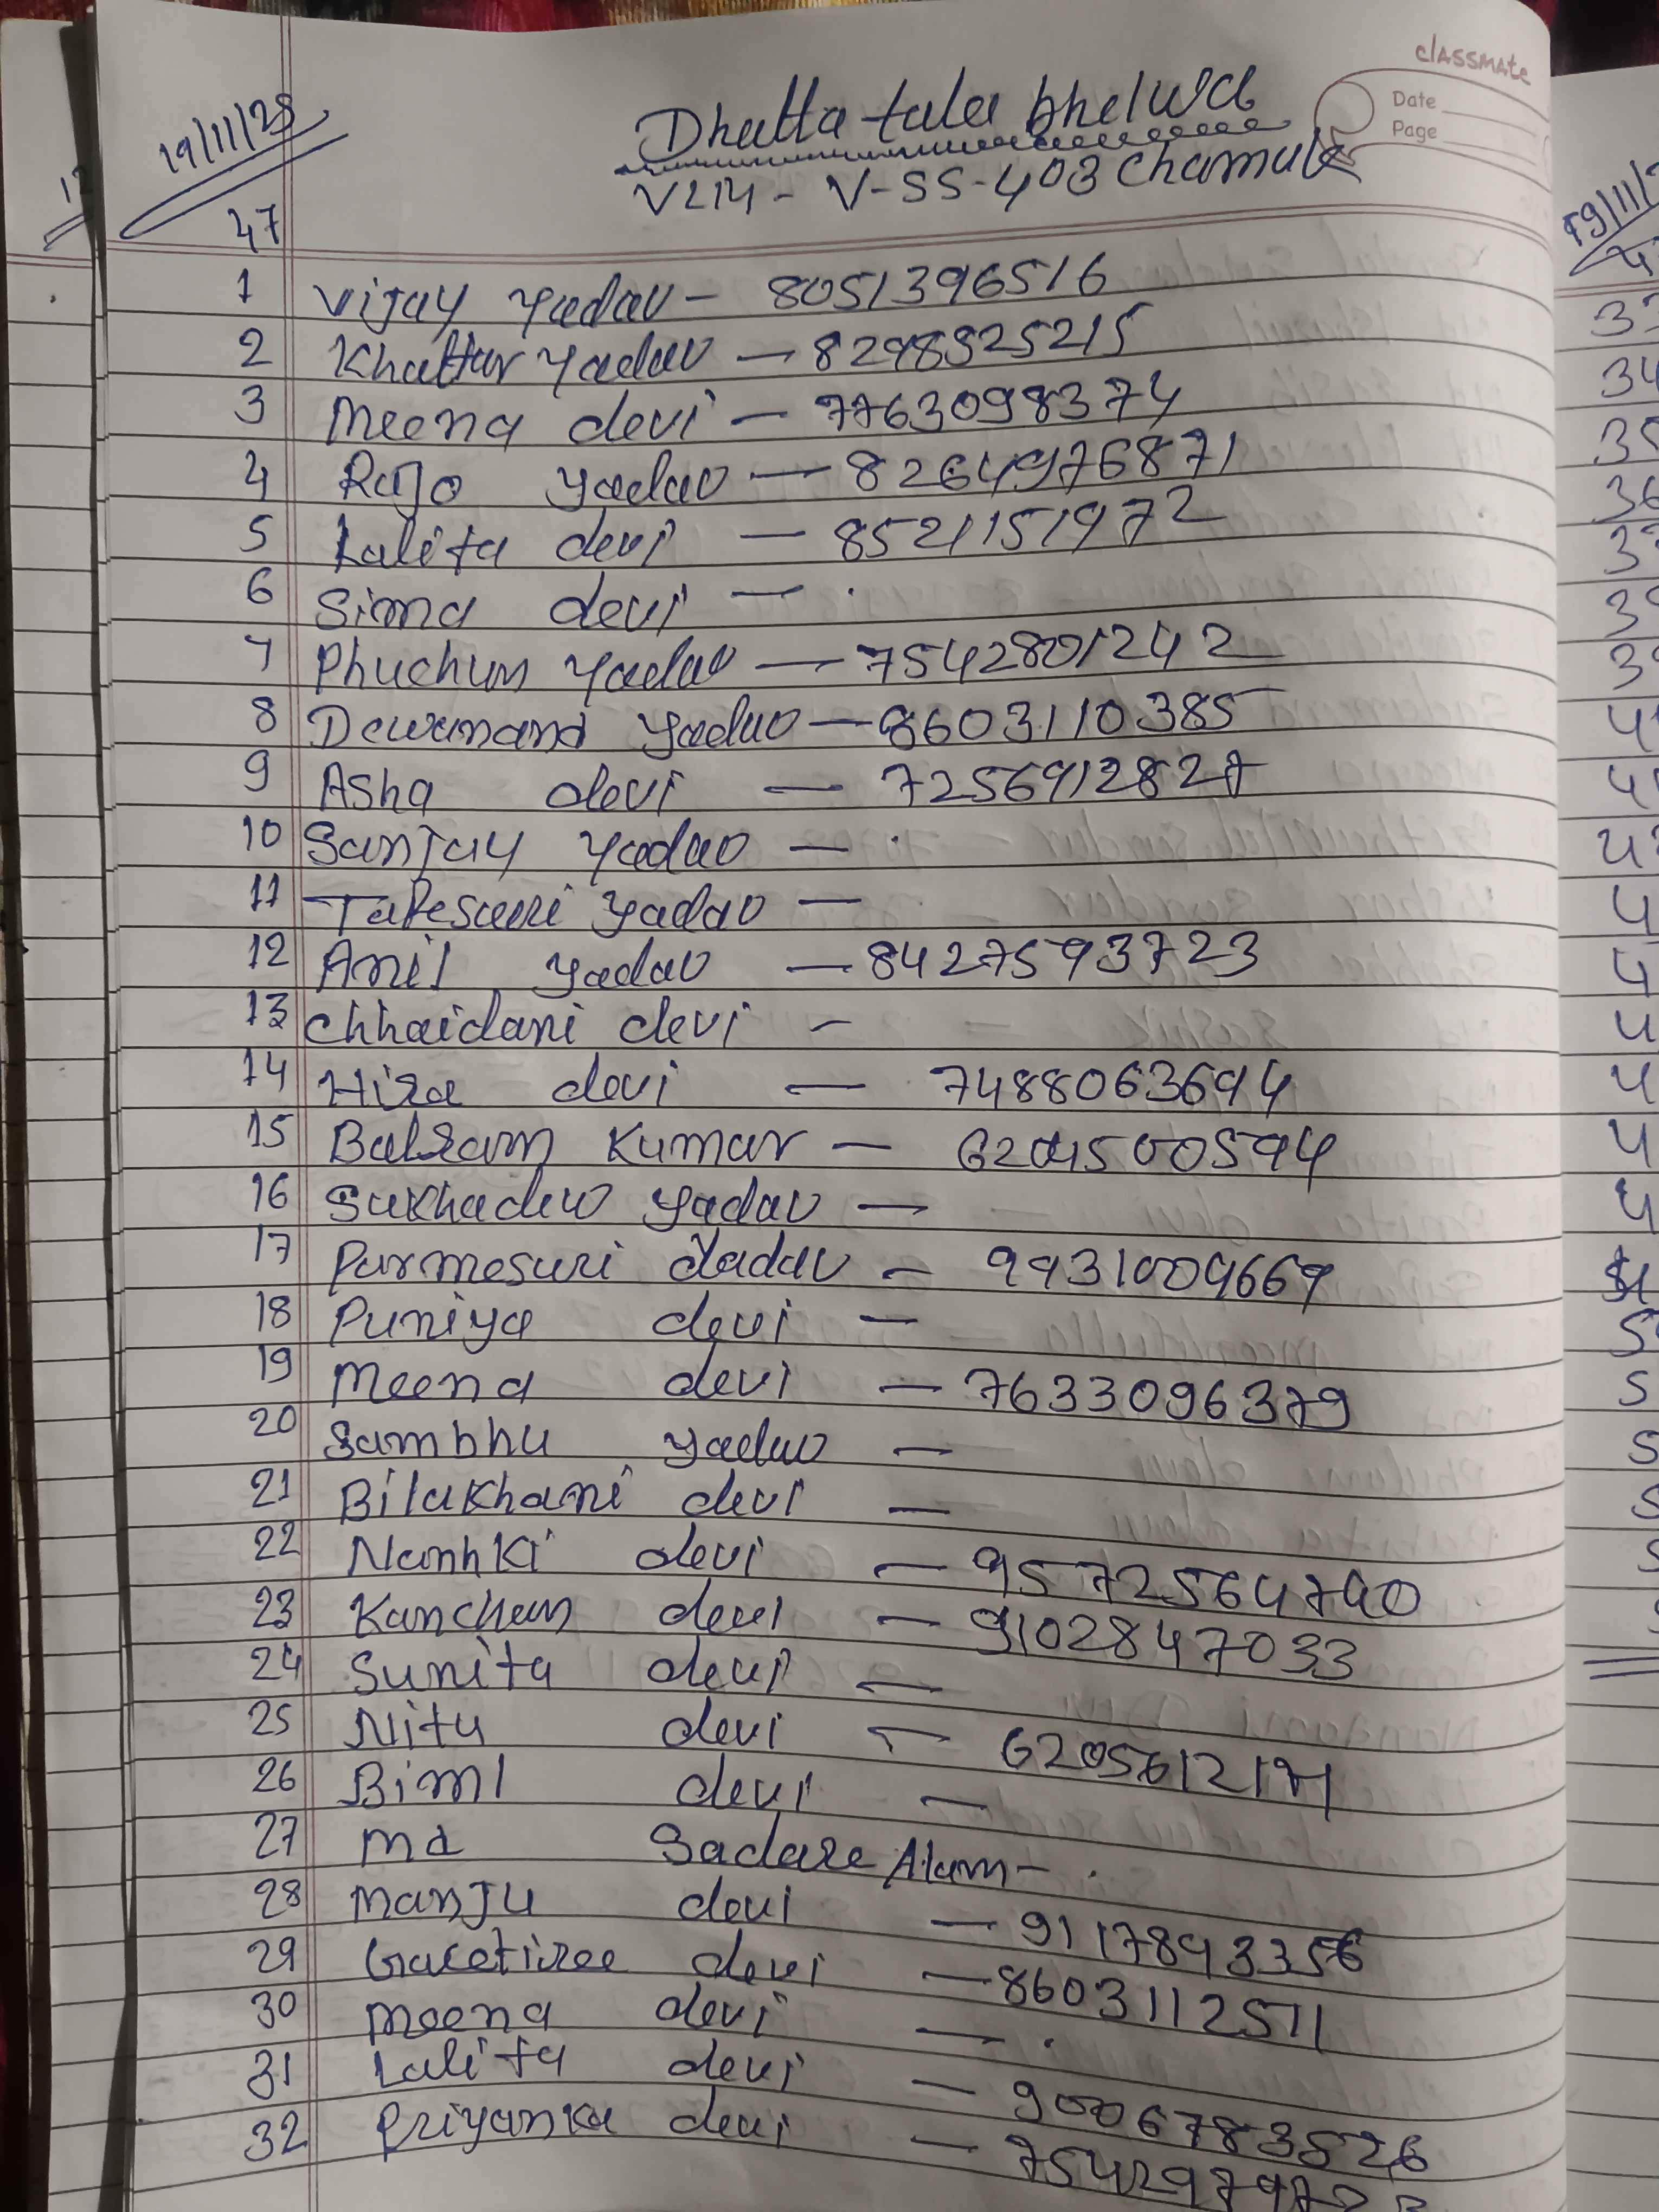 classmate
Date
Page
19/11/25
Dhatta tala bhelwa
V214 - V-SS-403 Chamuk
47
1 Vijay Yadav - 8051396516
2 Khattar Yadav - 8298525215
3 Meena devi - 7763098374
4 Rajo Yadav - 8264976871
5 Lalita devi - 8521151972
6 Sima devi -
7 Phuchun Yadav - 7542801242
8 Dewanand Yadav - 8603110385
9 Asha devi - 7256912827
10 Sanjay Yadav -
11 Tapesawri Yadav -
12 Anil Yadav - 8427593723
13 Chhaidani devi -
14 Hira devi - 7488063694
15 Balram Kumar -
16 Sukhadew Yadav -
17 Parmesuri Yadav - 9931009669
18 Puniya devi -
19 Meena devi - 7633096379
20 Sambhu Yadav -
21 Bilakhani devi -
22 Nanhki devi - 9572564740
23 Kanchan devi - 9102847033
24 Sunita devi -
25 Nitu devi -
26 Biml devi -
27 Md Sadare Alam -
28 Manju devi - 9117893356
29 devi - 8603112511
30 Meena devi -
31 Lalita devi - 9006783526
32 Priyanka devi -